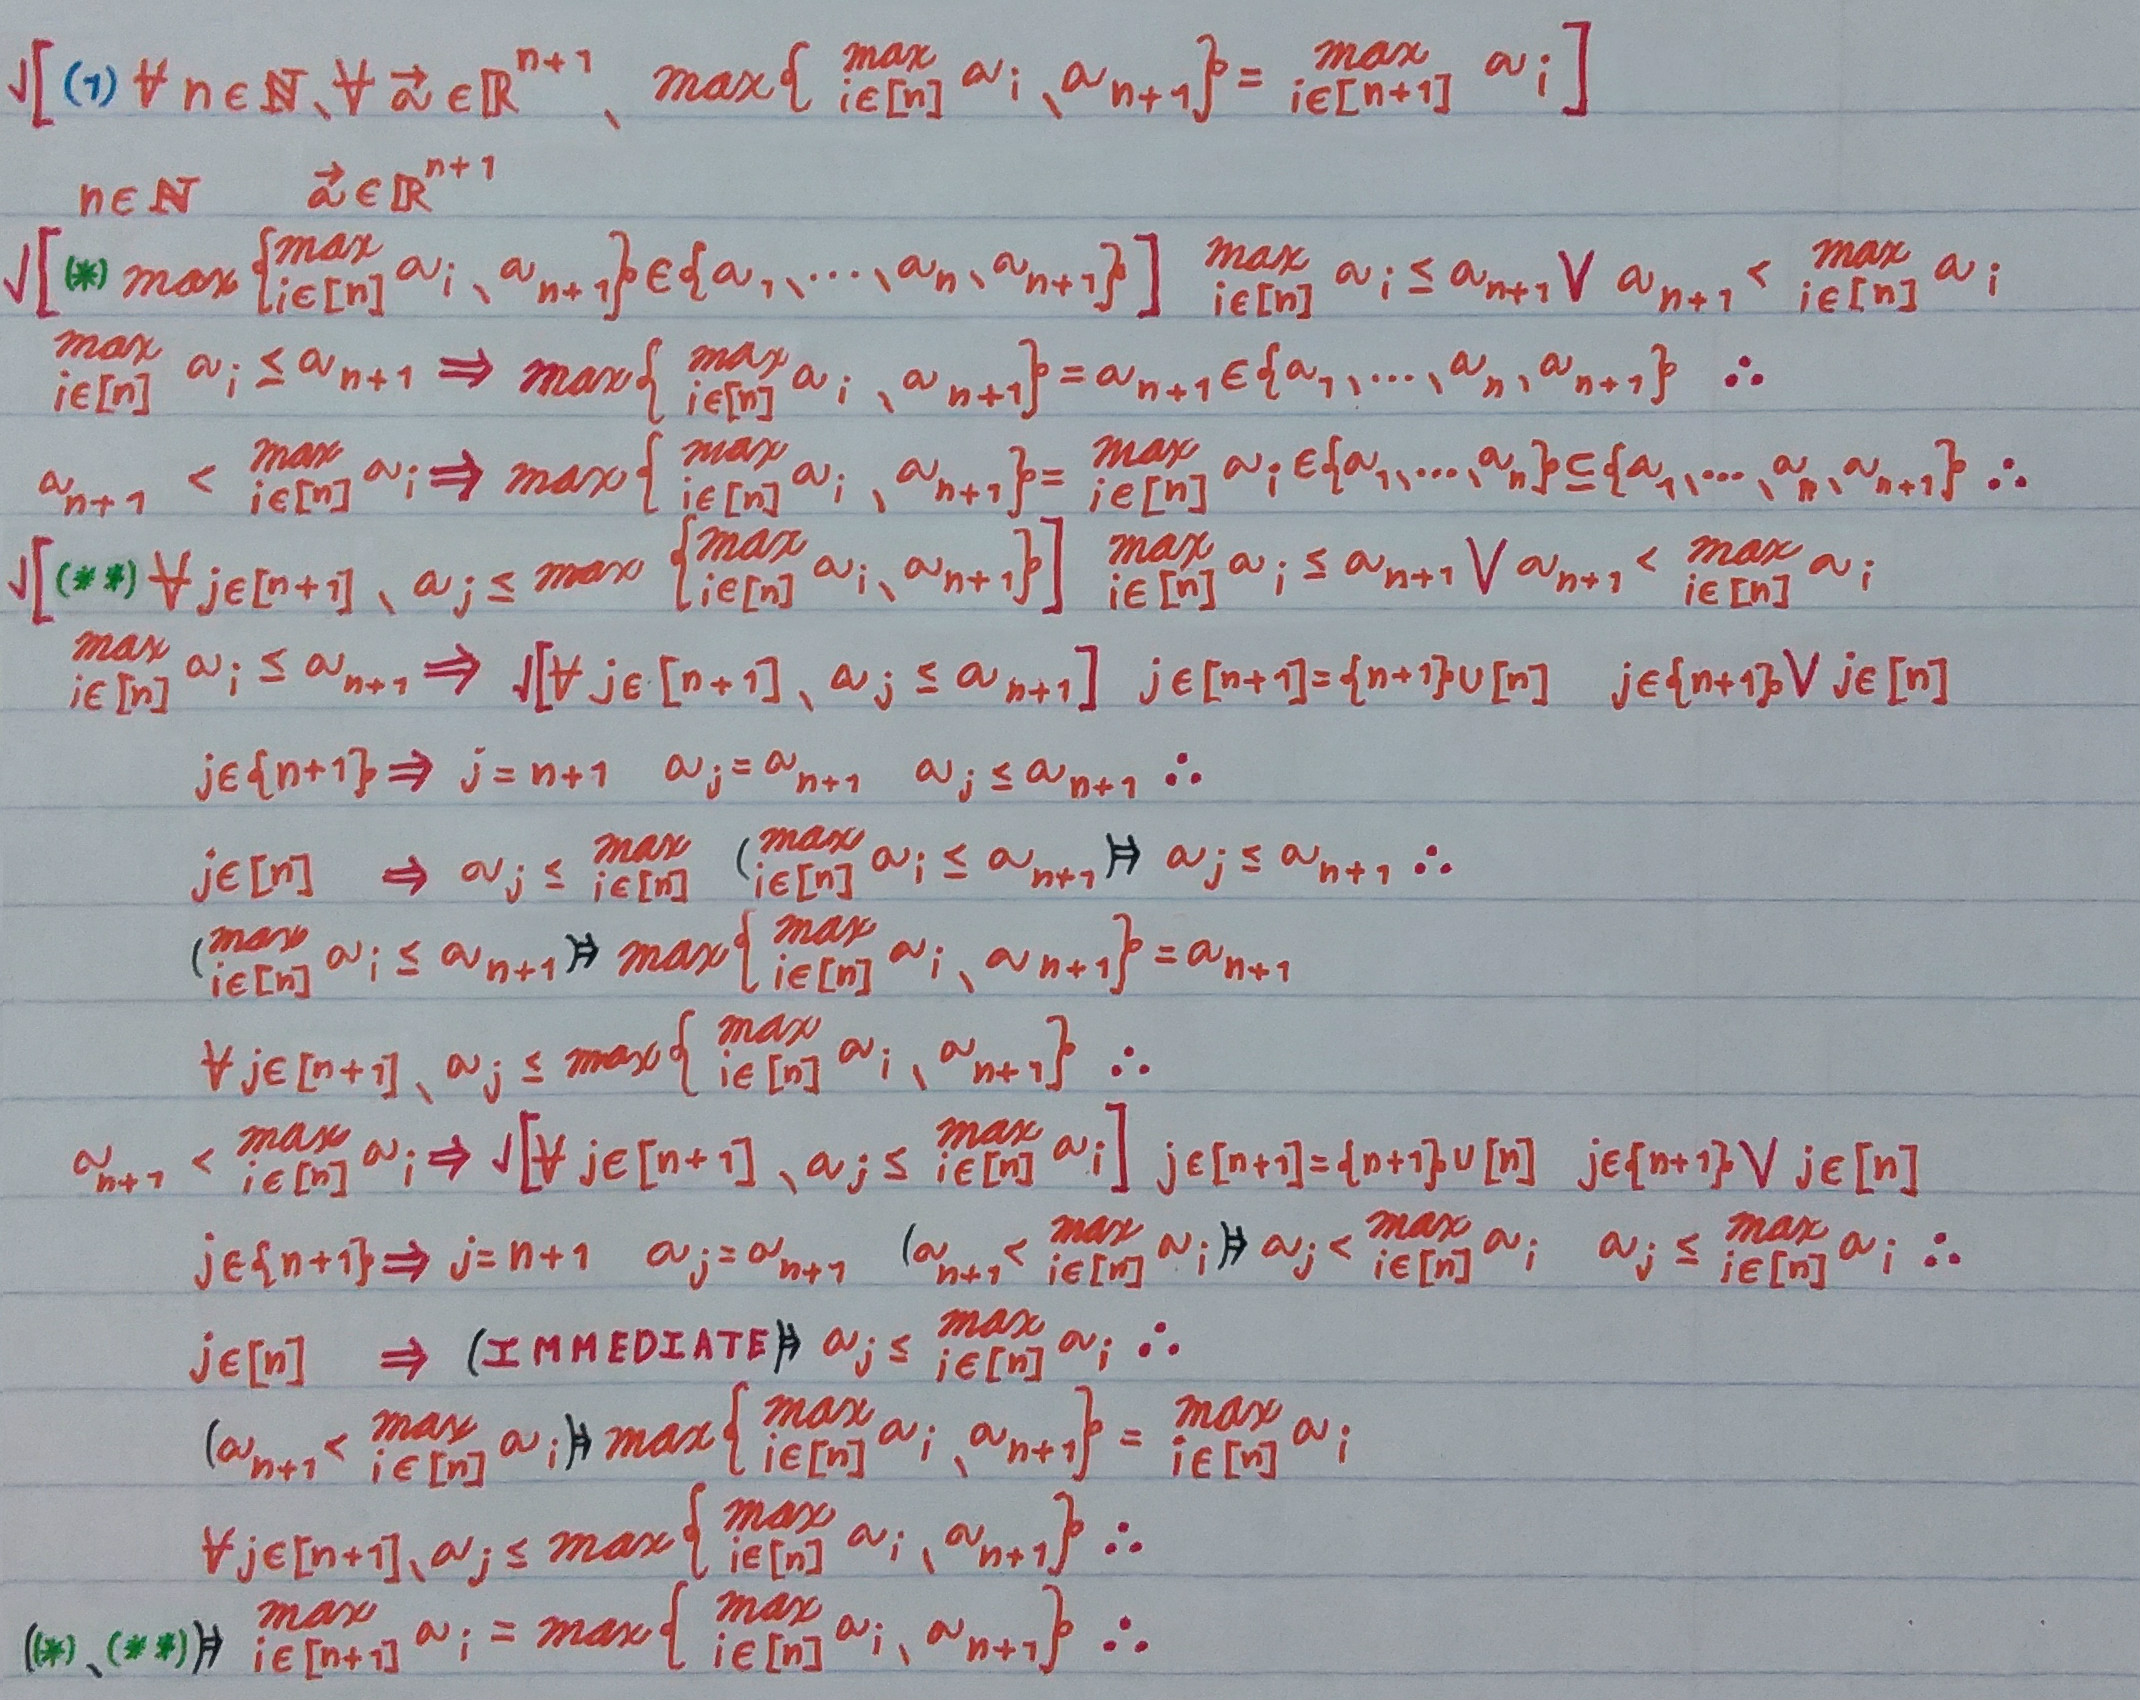 √[(1) ∀ n∈ℕ、∀ a⃗ ∈ℝ^{n+1}、 max{ max_{i∈[n]} a_i、a_{n+1}} = max_{i∈[n+1]} a_i]
n∈ℕ a⃗∈ℝ^{n+1}
√[(*) max {max_{i∈[n]} a_i、a_{n+1}}∈{a_1、…、a_n、a_{n+1}}] max_{i∈[n]} a_i ≤ a_{n+1} ∨ a_{n+1} < max_{i∈[n]} a_i
max_{i∈[n]} a_i ≤ a_{n+1} ⇒ max{ max_{i∈[n]} a_i、a_{n+1}} = a_{n+1} ∈{a_1、…、a_n、a_{n+1}} ∴
a_{n+1} < max_{i∈[n]} a_i ⇒ max{ max_{i∈[n]} a_i、a_{n+1}} = max_{i∈[n]} a_i ∈{a_1、…、a_n}⊆{a_1、…、a_n、a_{n+1}} ∴
√[(**) ∀ j∈[n+1]、a_j ≤ max {max_{i∈[n]} a_i、a_{n+1}}] max_{i∈[n]} a_i ≤ a_{n+1} ∨ a_{n+1} < max_{i∈[n]} a_i
max_{i∈[n]} a_i ≤ a_{n+1} ⇒ √[∀ j∈[n+1]、a_j ≤ a_{n+1}] j∈[n+1]={n+1}∪[n] j∈{n+1}∨ j∈[n]
j∈{n+1}⇒ j=n+1 a_j=a_{n+1} a_j ≤ a_{n+1} ∴
j∈[n] ⇒ a_j ≤ max_{i∈[n]} (max_{i∈[n]} a_i ≤ a_{n+1})⇒ a_j ≤ a_{n+1} ∴
(max_{i∈[n]} a_i ≤ a_{n+1})⇒ max{ max_{i∈[n]} a_i、a_{n+1}} = a_{n+1}
∀ j∈[n+1]、a_j ≤ max{ max_{i∈[n]} a_i、a_{n+1}} ∴
a_{n+1} < max_{i∈[n]} a_i ⇒ √[∀ j∈[n+1]、a_j ≤ max_{i∈[n]} a_i] j∈[n+1]={n+1}∪[n] j∈{n+1}∨ j∈[n]
j∈{n+1}⇒ j=n+1 a_j=a_{n+1} (a_{n+1} < max_{i∈[n]} a_i)⇒ a_j < max_{i∈[n]} a_i a_j ≤ max_{i∈[n]} a_i ∴
j∈[n] ⇒ (IMMEDIATE)⇒ a_j ≤ max_{i∈[n]} a_i ∴
(a_{n+1} < max_{i∈[n]} a_i)⇒ max{ max_{i∈[n]} a_i、a_{n+1}} = max_{i∈[n]} a_i
∀ j∈[n+1]、a_j ≤ max{ max_{i∈[n]} a_i、a_{n+1}} ∴
((*)、(**))⇒ max_{i∈[n+1]} a_i = max{ max_{i∈[n]} a_i、a_{n+1}} ∴